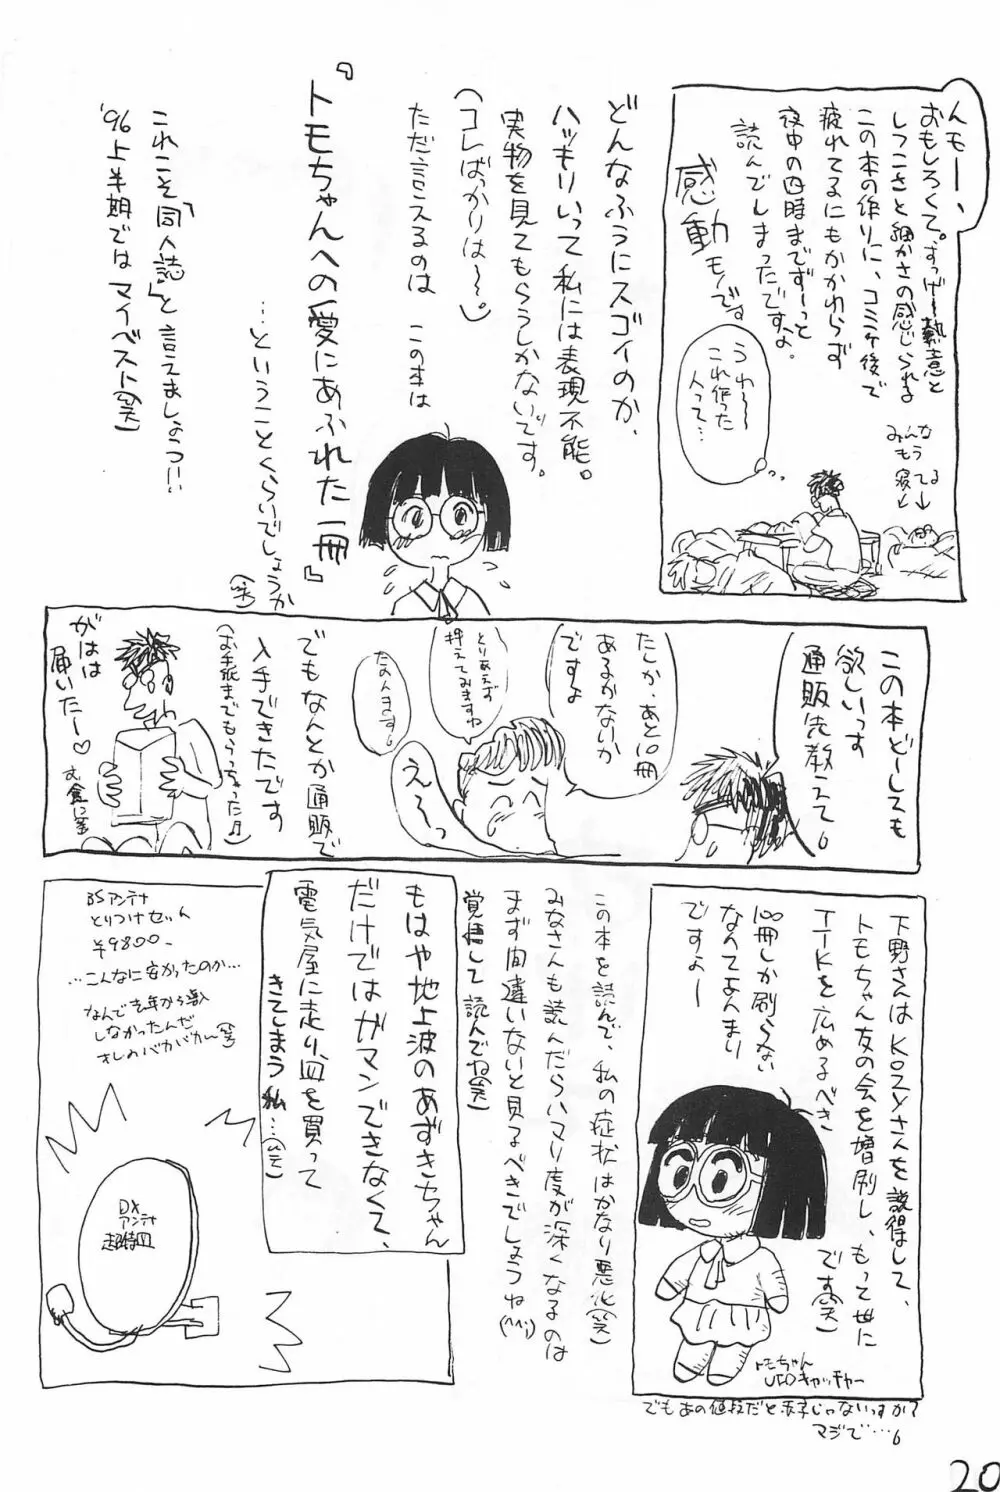 んモー、
おもしろくて。すっげー熱意と
しつこさと細かさの感じられる
この本の作りに、コミケ後で
疲れてるにもかかわらず
夜中の四時までずーっと
読んでしまったですよ。
感動モノです
うわ〜
これ作った
人って…
みんな
もう
寝てる
↓↓
どんなふうにスゴイのか、
ハッキリいって私には表現不能。
実物を見てもらうしかないです。
(コレばっかりは〜。)
ただ言えるのは この本は
『トモちゃんへの愛にあふれた一冊』
…ということくらいでしょうか
(笑)
これこそ「同人誌」と言えましょうっ!!
'96上半期ではマイベスト(笑)
この本どーしても
欲しいっす
通販先教えて。
たしか、あと10冊
あるかないか
ですよ
とりあえず
押えてみますね
たのんます。
え〜っ
でもなんとか通販で
入手できたです
(お手紙までもらっちゃった♬)
がはは
届いたー♡
下野さんはKOZYさんを説得して、
トモちゃん友の会を増刷し、もって世に
TTKを広めるべき
です(笑)
100冊しか刷らない
なんてあんまり
ですよー
トモちゃん
UFOキャッチャー
でもあの値段だと赤字じゃないっすか?
マジで…。
この本を読んで、私の症状はかなり悪化(笑)
みなさんも読んだらハマり度が深くなるのは
まず間違いないと見るべきでしょうね(^^;)
覚悟して読んでね(笑)
もはや地上波のあずきちゃん
だけではガマンできなくて、
電気屋に走り、皿を買って
きてしまう私…(笑)
BSアンテナ
とりつけセット
¥9800-
…こんなに安かったのか…
なんで去年から導入
しなかったんだ
オレのバカバカ〜(笑)
DX
アンテナ
超特皿
20